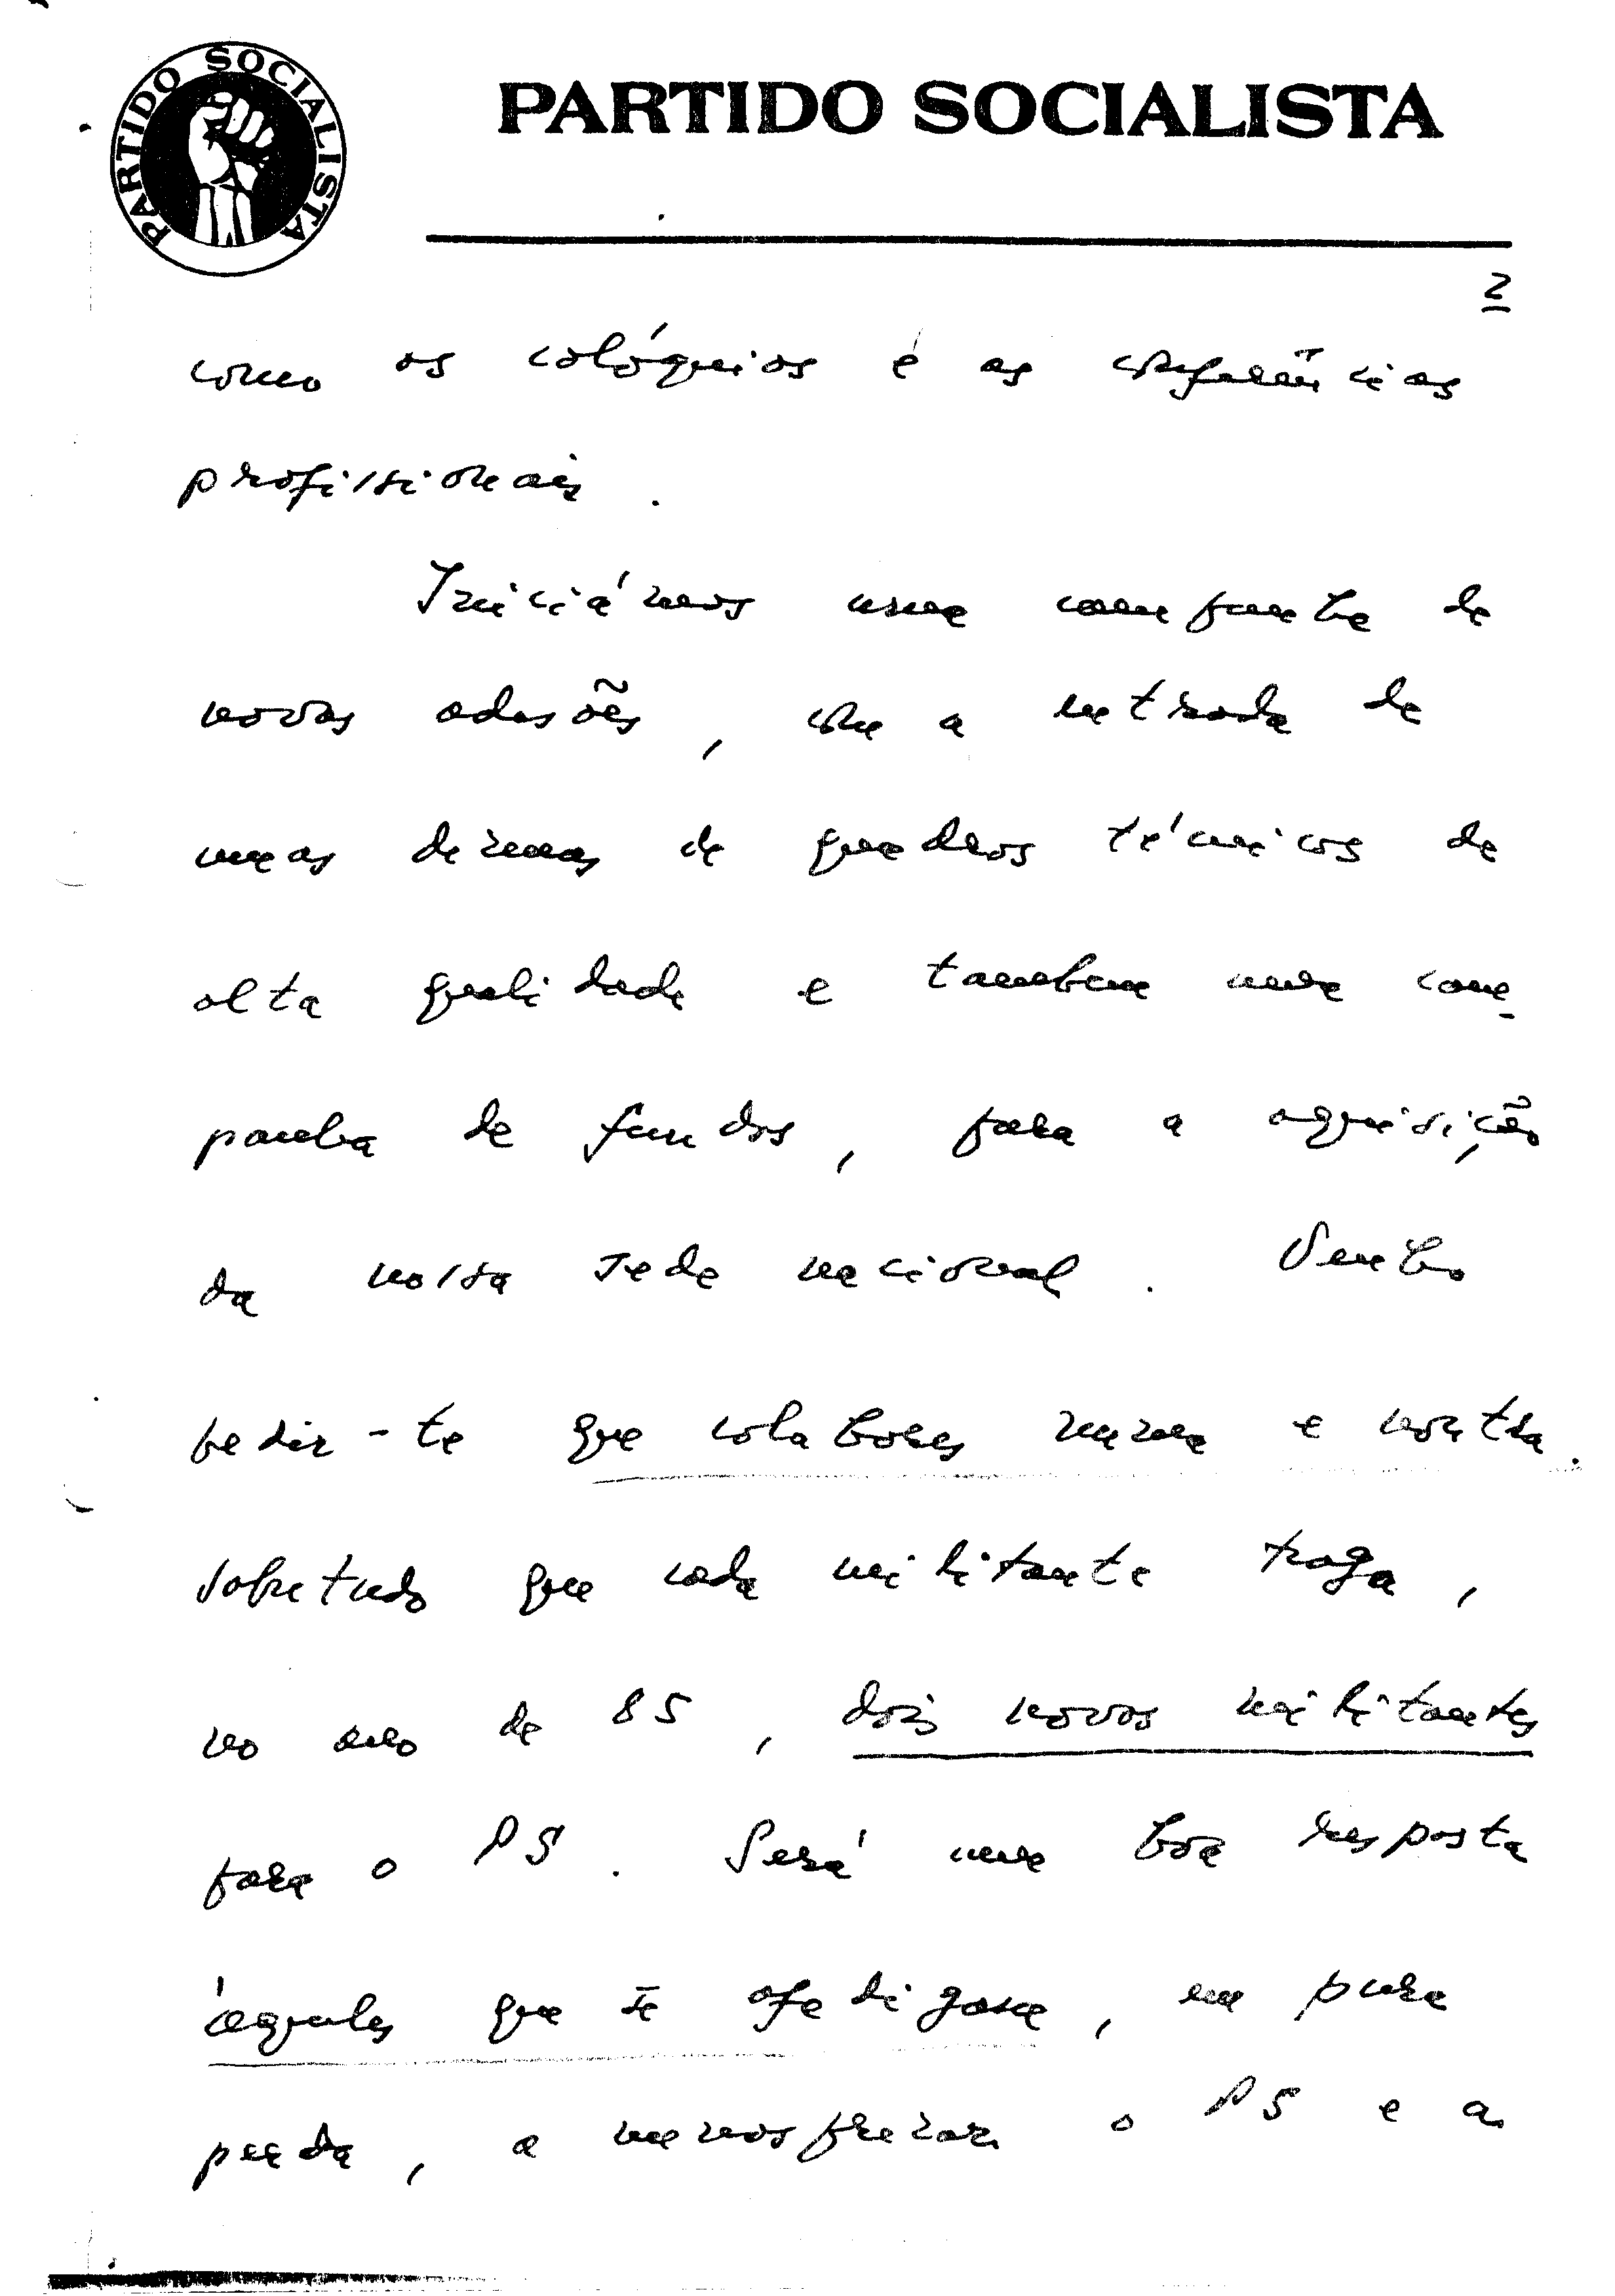 PARTIDO SOCIALISTA
PARTIDO SOCIALISTA
2
como os colóquios e as conferências
profissionais.
Iniciámos uma campanha de
novas adesões, com a entrada de
umas dezenas de quadros técnicos de
alta qualidade e tambem uma cam-
panha de fundos, para a aquisição
da nossa sede nacional. Venho
pedir-te que colabores numa e noutra.
Sobretudo que cada militante traga,
no ano de 85, dois novos militantes
para o PS. Será uma boa resposta
àqueles que se afadigam, em pura
perda, a menosprezar o PS e a